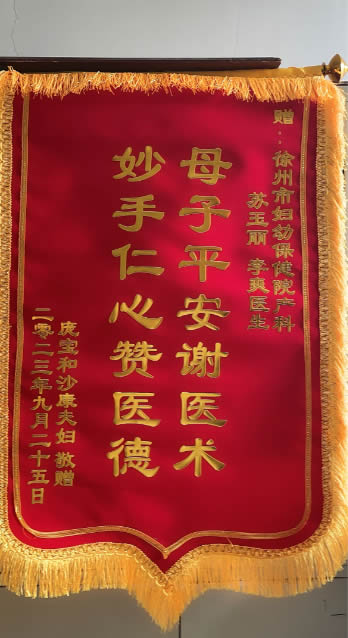 赠：徐州市妇幼保健院产科
苏玉丽 李爽医生
母子平安谢医术
妙手仁心赞医德
庞宝和沙康夫妇 敬赠
二零二三年九月二十五日